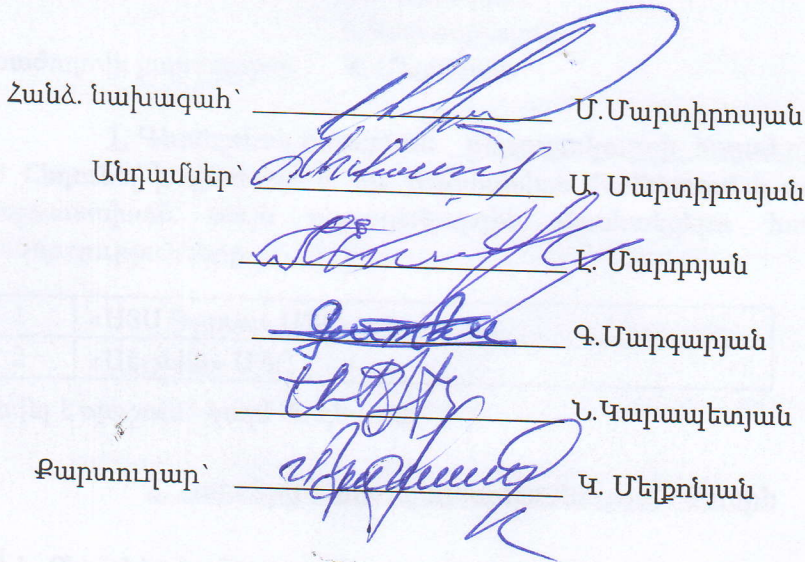 Հանձ. նախագահ՝ Մ.Մարտիրոսյան
Անդամներ՝ Ա. Մարտիրոսյան
Լ. Մարդոյան
Գ.Մարգարյան
Ն.Կարապետյան
Քարտուղար՝ Կ. Մելքոնյան